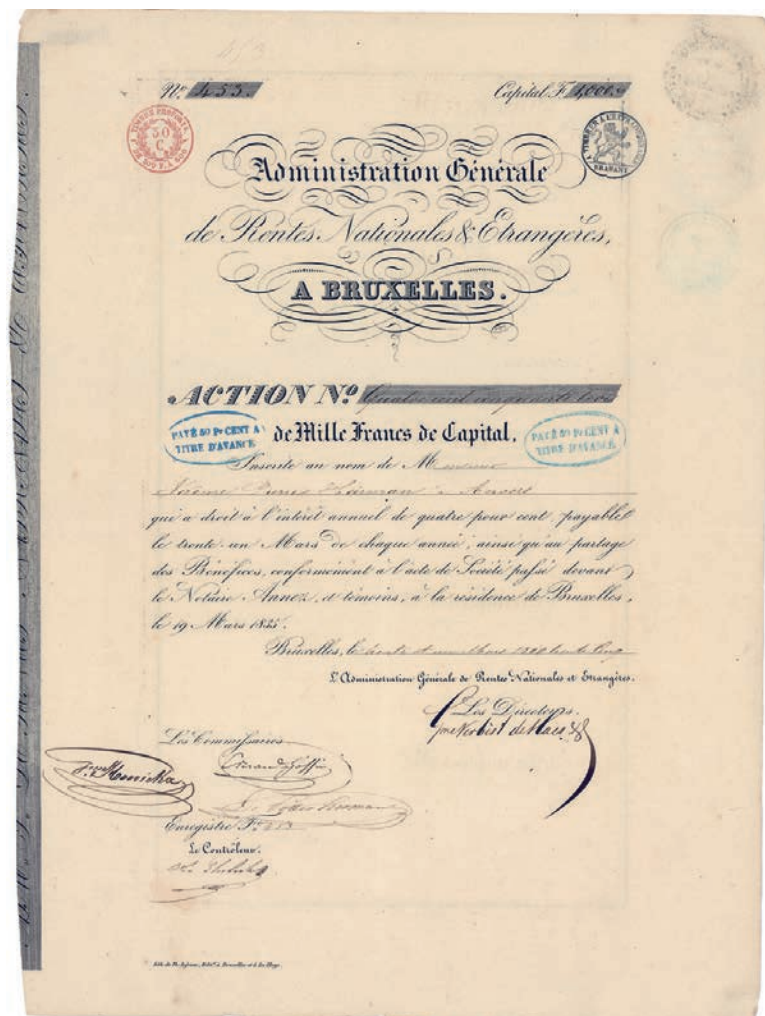 453
Nº 453. Capital F 1,000.
TIMBRE PROPORT.
50 C.
DE 500 F. A
TIMBRE A L'EXTRAORDINAIRE
BRABANT
Administration Générale
de Rentes Nationales & Etrangères,
A BRUXELLES.
ACTION Nº Quatre cent cinquante trois
PAYÉ 50 Pr CENT A
TITRE D'AVANCE
de Mille Francs de Capital,
PAYÉ 50 Pr CENT A
TITRE D'AVANCE
Inscrite au nom de Monsieur
à Anvers
qui a droit à l'intérêt annuel de quatre pour cent, payable
le trente-un Mars de chaque année, ainsi qu'au partage
des Bénéfices, conformément à l'acte de Société passé devant
le Notaire Annez, et témoins, à la résidence de Bruxelles,
le 19 Mars 1835.
Bruxelles, le trente et un Mars 1800 trente Cinq
L'Administration Générale de Rentes Nationales et Etrangères.
Les Directeurs.
Les Commissaires
Enregistré Fº 253
Le Contrôleur.